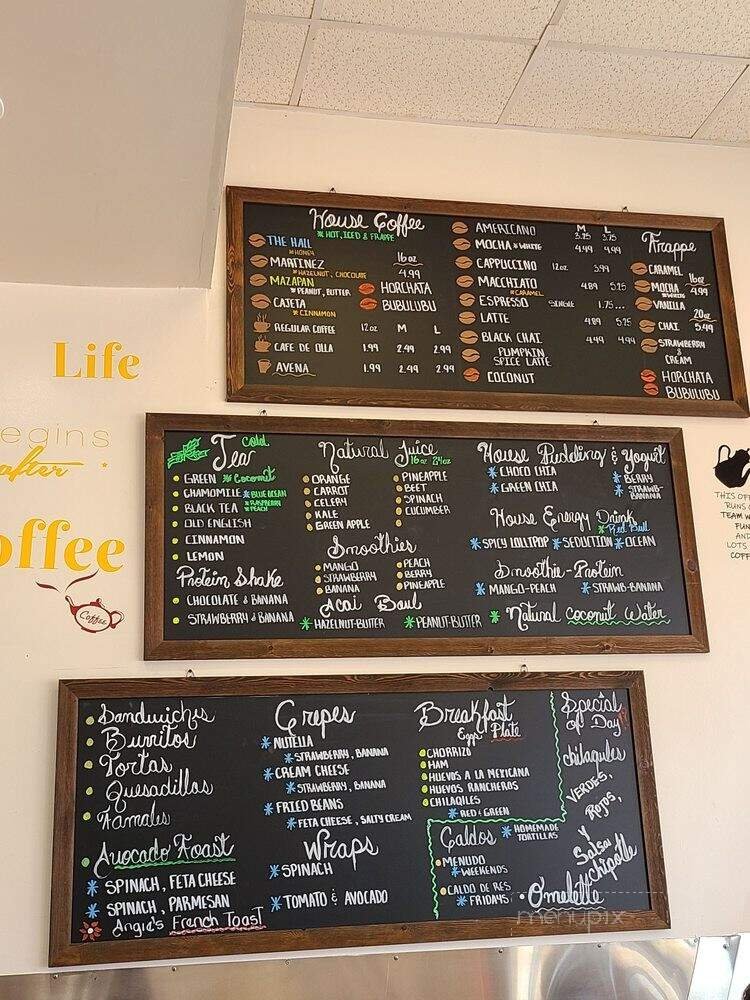 Life
egins
after
offee
Coffee
House Coffee
* HOT, ICED & FRAPPE
THE HALL
* HONEY
MARTINEZ
* HAZELNUT, CHOCOLATE
MAZAPAN
* PEANUT, BUTTER
CAJETA
* CINNAMON
16oz
4.99
HORCHATA
BUBULUBU
REGULAR COFFEE 12oz M L
CAFE DE OLLA 1.99 2.99 2.99
AVENA 1.99 2.99 2.99
M L
AMERICANO 3.25 3.75
MOCHA * WHITE 4.49 4.99
CAPPUCCINO 12oz 3.99
MACCHIATO 4.89 5.25
* CARAMEL
ESPRESSO SINGLE 1.75...
LATTE 4.89 5.25
BLACK CHAI 4.49 4.99
PUMPKIN
SPICE LATTE
COCONUT
Frappe
CARAMEL
16oz
MOCHA 4.99
* WHITE
VANILLA
20oz
CHAI 5.49
STRAWBERRY
&
CREAM
HORCHATA
BUBULUBU
Tea Cold
GREEN * Coconut
CHAMOMILE * BLUE OCEAN
* RASPBERRY
BLACK TEA * PEACH
OLD ENGLISH
CINNAMON
LEMON
Protein Shake
CHOCOLATE & BANANA
STRAWBERRY & BANANA
Natural Juice
16oz 24oz
ORANGE
CARROT
CELERY
KALE
GREEN APPLE
PINEAPPLE
BEET
SPINACH
CUCUMBER
Smoothies
MANGO
STRAWBERRY
BANANA
PEACH
BERRY
PINEAPPLE
Acai Baul
* HAZELNUT-BUTTER * PEANUT-BUTTER
House Pudding & Yogurt
* CHOCO CHIA
* GREEN CHIA
* BERRY
* STRAWB-
BANANA
House Energy Drink
* Red Bull
* SPICY LOLLIPOP * SEDUCTION * OCEAN
Smoothie-Protein
* MANGO-PEACH * STRAWB-BANANA
* Natural Coconut Water
THIS OF
RUNS
TEAM W
FUN
AND
LOTS
COFF
Sandwiches
Burritos
Tortas
Quesadillas
Tamales
Avocado Toast
* SPINACH, FETA CHEESE
* SPINACH, PARMESAN
Angia's French Toast
Crepes
* NUTELLA
* STRAWBERRY, BANANA
* CREAM CHEESE
* STRAWBERRY, BANANA
* FRIED BEANS
* FETA CHEESE, SALTY CREAM
Wraps
* SPINACH
* TOMATO & AVOCADO
Breakfast
Eggs Plate
CHORRIZO
HAM
HUEVOS A LA MEXICANA
HUEVOS RANCHEROS
CHILAQILES
* RED & GREEN
Caldos * HOMEMADE
TORTILLAS
MENUDO
* WEEKENDS
CALDO DE RES
* FRIDAYS
Special
OF Day
chilaqules
VERDES,
ROJOS,
Y
Salsa
chipotle
• Omelette
menupix